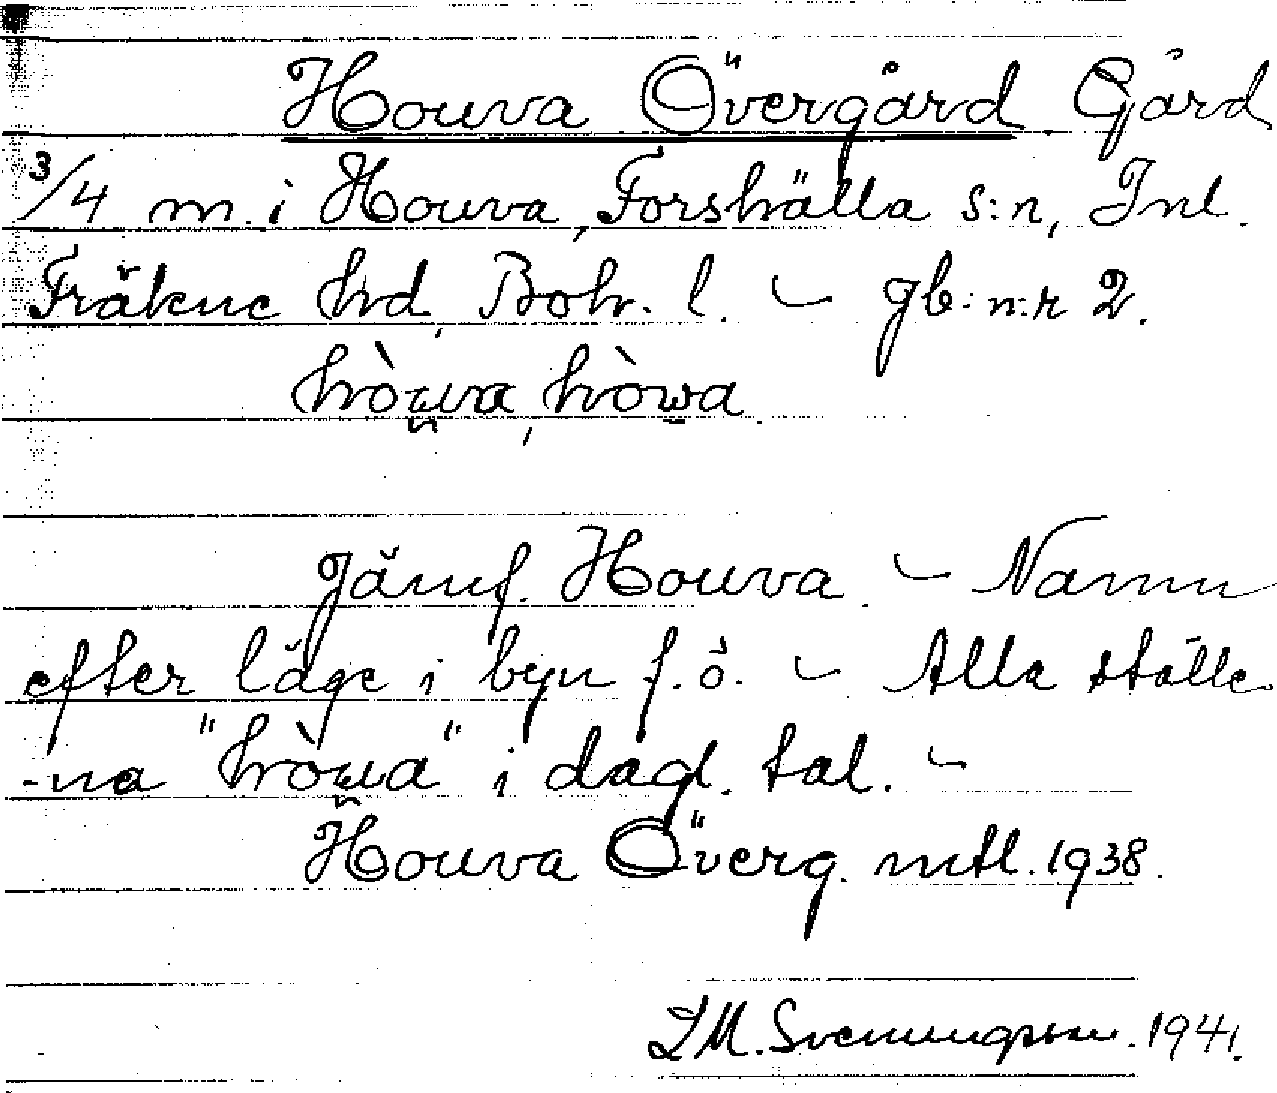 Houva Övergård Gård
3/4 m. i Houva, Forshälla s:n, Inl.
Fräkne hd, Boh. l. – gb: n:r 2.
hòu̯va, hòwa
Jämf. Houva. – Namn
efter läge i byn f. ö. – Alla ställe
-na "hòu̯a" i dagl. tal. –
Houva Överg. mtl. 1938.
L M. Svenungsson. 1941.